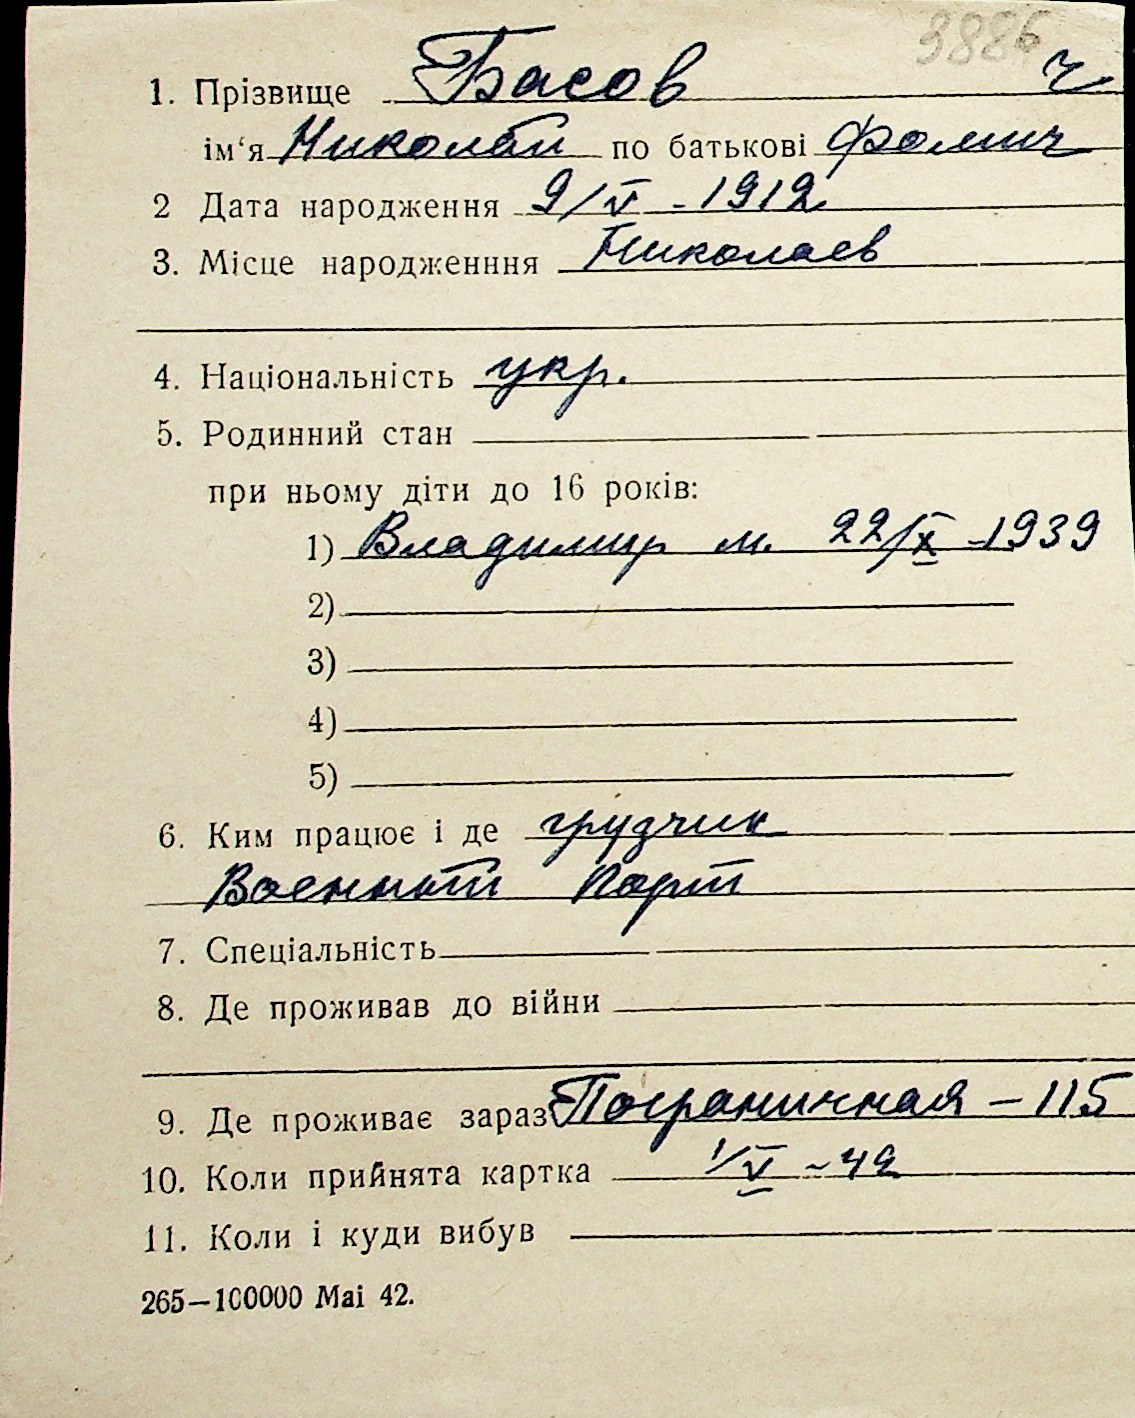 3886
1. Прізвище Басов ч
ім'я Николай по батькові Фомич
2 Дата народження 9/V - 1912
3. Місце народженння Николаев
4. Національність укр.
5. Родинний стан
при ньому діти до 16 років:
1) Владимир м. 22/X - 1939
2)
3)
4)
5)
6. Ким працює і де грузчик
Военный Порт
7. Спеціальність
8. Де проживав до війни
9. Де проживає зараз Пограничная - 115
10. Коли прийнята картка 1/V - 42
11. Коли і куди вибув
265—100000 Маі 42.